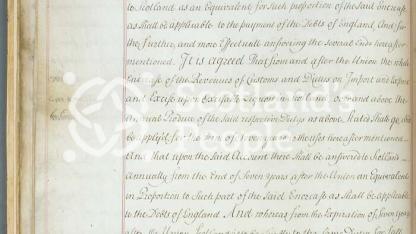 to Scotland as an Equivalent for such proportion of the said Encrease
as shall be applicable to the payment of the Debts of England, And for
the further, and more effectuall answering the severall Ends hereafter
mentioned. It is agreed That from and after the Union the whole
Encrease of the Revenues of Customs and Duties on Import and Export
and Excise upon Exciseable Liquors in Scotland, over and above the
annual Produce of the said respective Dutys as above stated shall go, and
be applyed for the term of seven years to the Uses hereafter mentioned
And that upon the said Account there shall be answered to Scotland
annually from the End of Seven years after the Union an Equivalent
in Proportion to such part of the said Encrease as shall be applicable
to the Debts of England. And whereas from the Expiration of Seven years
after the Union Scotland is to be lyable to the same Duties for Salt
Scotland's People